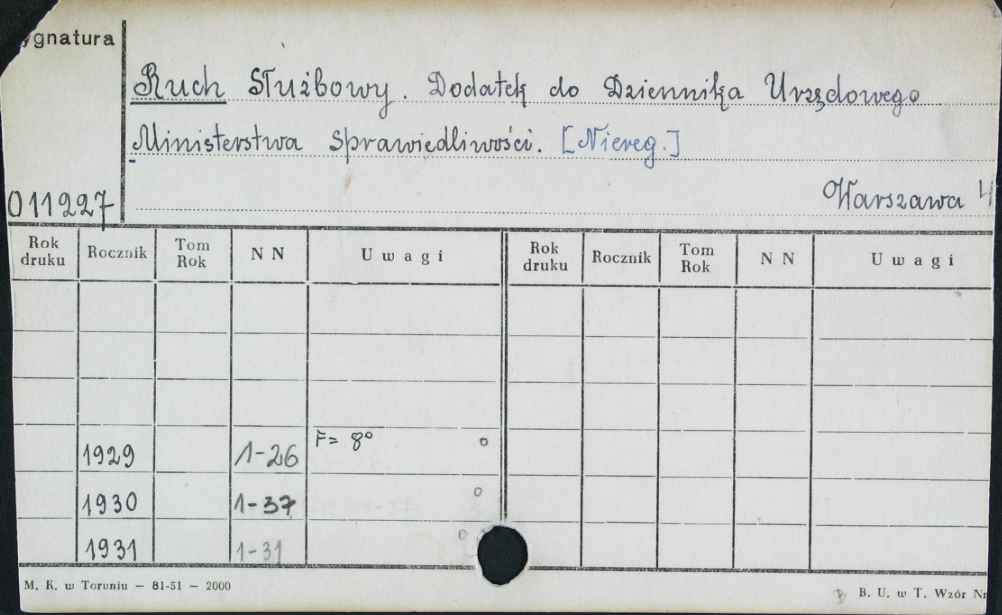 ygnatura
Ruch Służbowy. Dodatek do Dziennika Urzędowego
Ministerstwa Sprawiedliwości. [Niereg.]
011227
Warszawa 4
Rok druku Rocznik Tom Rok N N Uwagi Rok druku Rocznik Tom Rok N N Uwagi
1929 1-26 F= 8° o
1930 1-37 o
1931 1-31 o
M. K. w Toruniu — 81-51 — 2000
B. U. w T. Wzór Nr